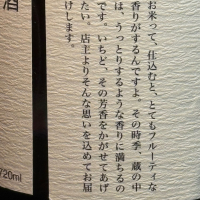 お米って、仕込むと、とてもフルーティな
香りがするんですよ。その時季、蔵の中
は、うっとりするような香りに満ちるの
です。いちど、その芳香をかがせてあげ
たい。店主よりそんな思いを込めてお届
けします。
酒
720ml